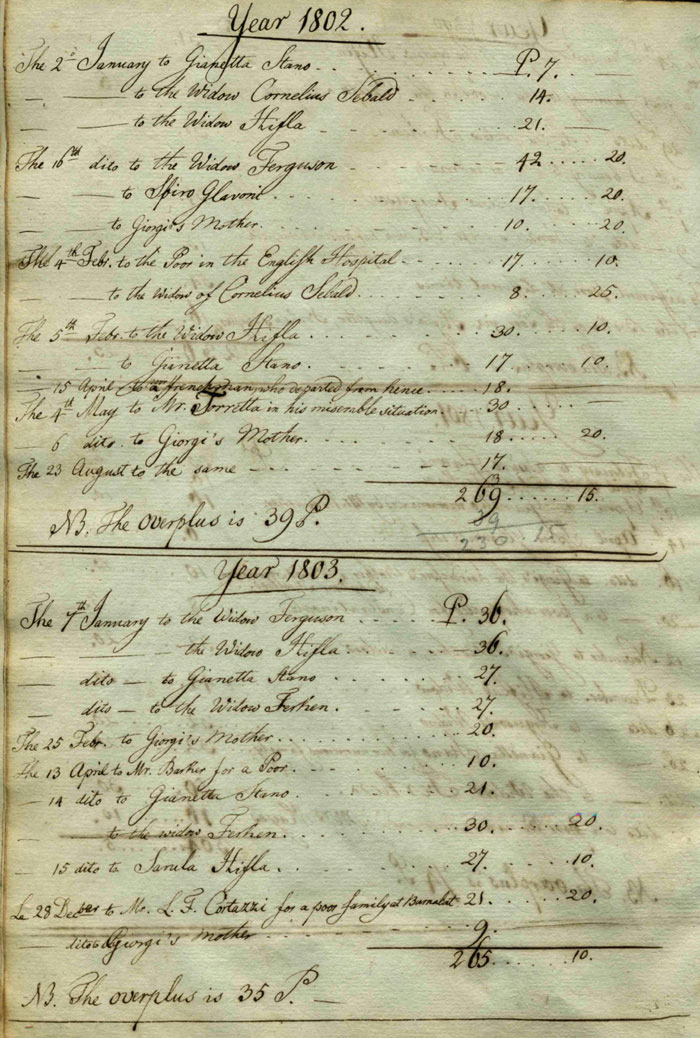 Year 1802.
The 2d January to Gianetta Stano P. 7. —
— — to the Widow Cornelius Sebald 14.
— — to the Widow Hifla 21. —
The 16th dito to the Widow Ferguson 42 20.
— to Spiro Glavoni 17. 20.
— to Giorgi's Mother 10. 20.
The 4th Febr. to the Poor in the English Hospital 17 10.
— to the Widow of Cornelius Sebald 8. 25.
The 5th Febr. to the Widow Hifla 30. 10.
— to Gianetta Stano 17 10.
— 15 April to a frenchman, who departed from hence 18.
The 4th May to Mr. Torretta in his miserable situation 30 —
— 6 dito to Giorgi's Mother 18 20.
The 23 August to the same 17.
269 15.
NB. The overplus is 39 P.
39
230 15
Year 1803.
The 7th January to the Widow Ferguson P. 36.
— — the Widow Hifla 36.
— dito — to Gianetta Stano 27.
— dito — to the Widow Ferhen 27.
The 25 Febr. to Giorgi's Mother 20.
The 13 April to Mr. Barker for a Poor 10.
— 14 dito to Gianetta Stano 21.
— to the widow Ferhen 30. 20.
— 15 dito to Sarula Hifla 27. 10.
Le 28 Decber to Mr. L. F. Cortazzi for a poor family at Burnabat 21 20.
— dito to Giorgi's Mother 9.
265 10.
NB. The overplus is 35 P. —